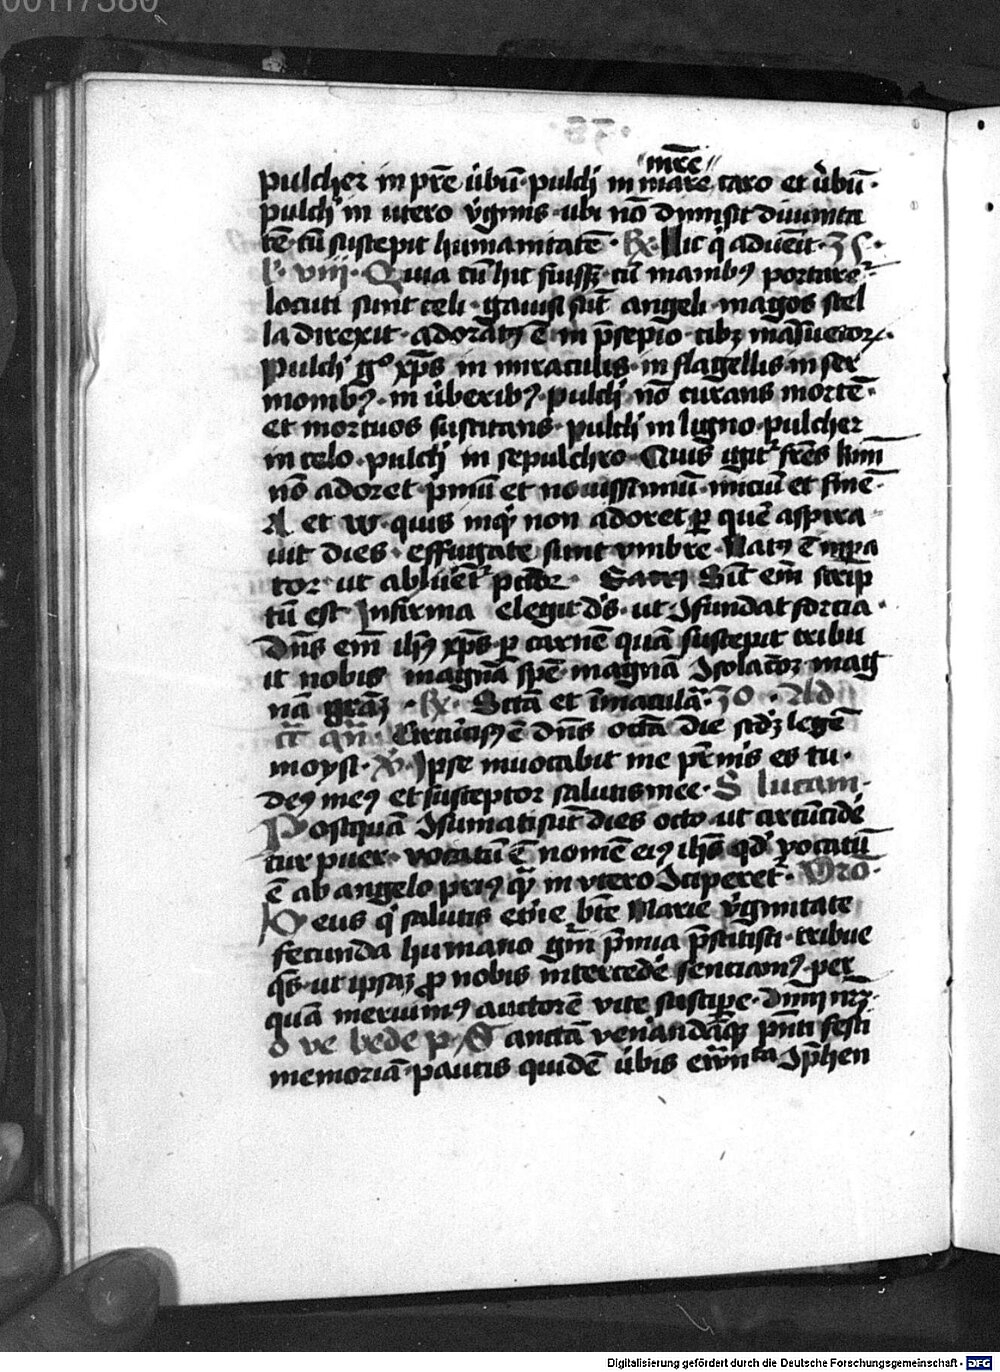 00117380
·38·
"mr̄e"
pulcher in pr̄e ỽbū · pulchͥ in mare caro et ỽbū ·
pulchͥ in utero ỽginis · ubi nō dimisit diuinita
tē · cū suscepit humanitatē · R̸ Hic qͥ aduēit · 35 ·
l' · viij · Quia cū hic fuiss; cū manibꝰ portaret᷑
locuti sunt celi · gauisi sūt angeli · magos stel
la direxit · adoratꝰ ē in p̄sepio · cibꝫ māsuetoꝝ ·
pulchͥ gͦ xp̄s in miraculis · in flagellis · in ser
monibꝰ · in ỽberibꝰ · pulchͥ nō curans mortē ·
et mortuos suscitans · pulchͥ in ligno · pulcher
in celo · pulchͥ in sepulchro · Quis igit᷑ fr̄es kmi
nō adoret · p̄mū et nouissimū · iniciū et finē ·
A et w · quis inqͣ non adoret ꝑ quē aspira
uit dies · effugate sunt vmbre · Natꝰ ē impa
tor · ut abluēt᷑ pc̄tor · Sic̄ em̄ scrip
tū est Infirma elegit d̄s · ut ꝯfundat forcia ·
Dn̄s em̄ ih̄s xp̄s ꝑ carnē quā suscepit tribu
it nobis magnā spē · magnā ꝯsolac̄oꝫ mag
nā grāꝫ · R̸ · Sc̄tā et īmaculā · 30 · Ad
Circūcisꝰ ē dn̄s octā die scdꝫ legē
moysi · V̸ · Ipse inuocabit me pr̄ meꝰ es tu ·
deꝰ meꝰ et susceptor salutis mee · S lucam ·
Postquā ꝯsumati sūt dies octo · ut circūcide
tur puer · vocatū ē nomē eiꝰ ih̄s qd̄ vocatū
ē ab angelo priꝰ qͣ in vtero ꝯciperet᷑ · Oro ·
Deus qͥ salutis et̄ne bt̄e Marie ỽginitate
fecunda humano gn̄i p̄mia p̄stitisti · tribue
q̄s · ut ipsaꝫ ꝓ nobis intercedē senciamꝰ · per
quā meruimꝰ auctorē vite suscipe · dn̄m nr̄ꝫ ·
o ve bede p̄ · Sanctā ven̄andāqꝫ pn̄ti festi
memoriā · paucis quidē ỽbis ew̄n ta ꝯp̄hen
Digitalisierung gefördert durch die Deutsche Forschungsgemeinschaft · DFG